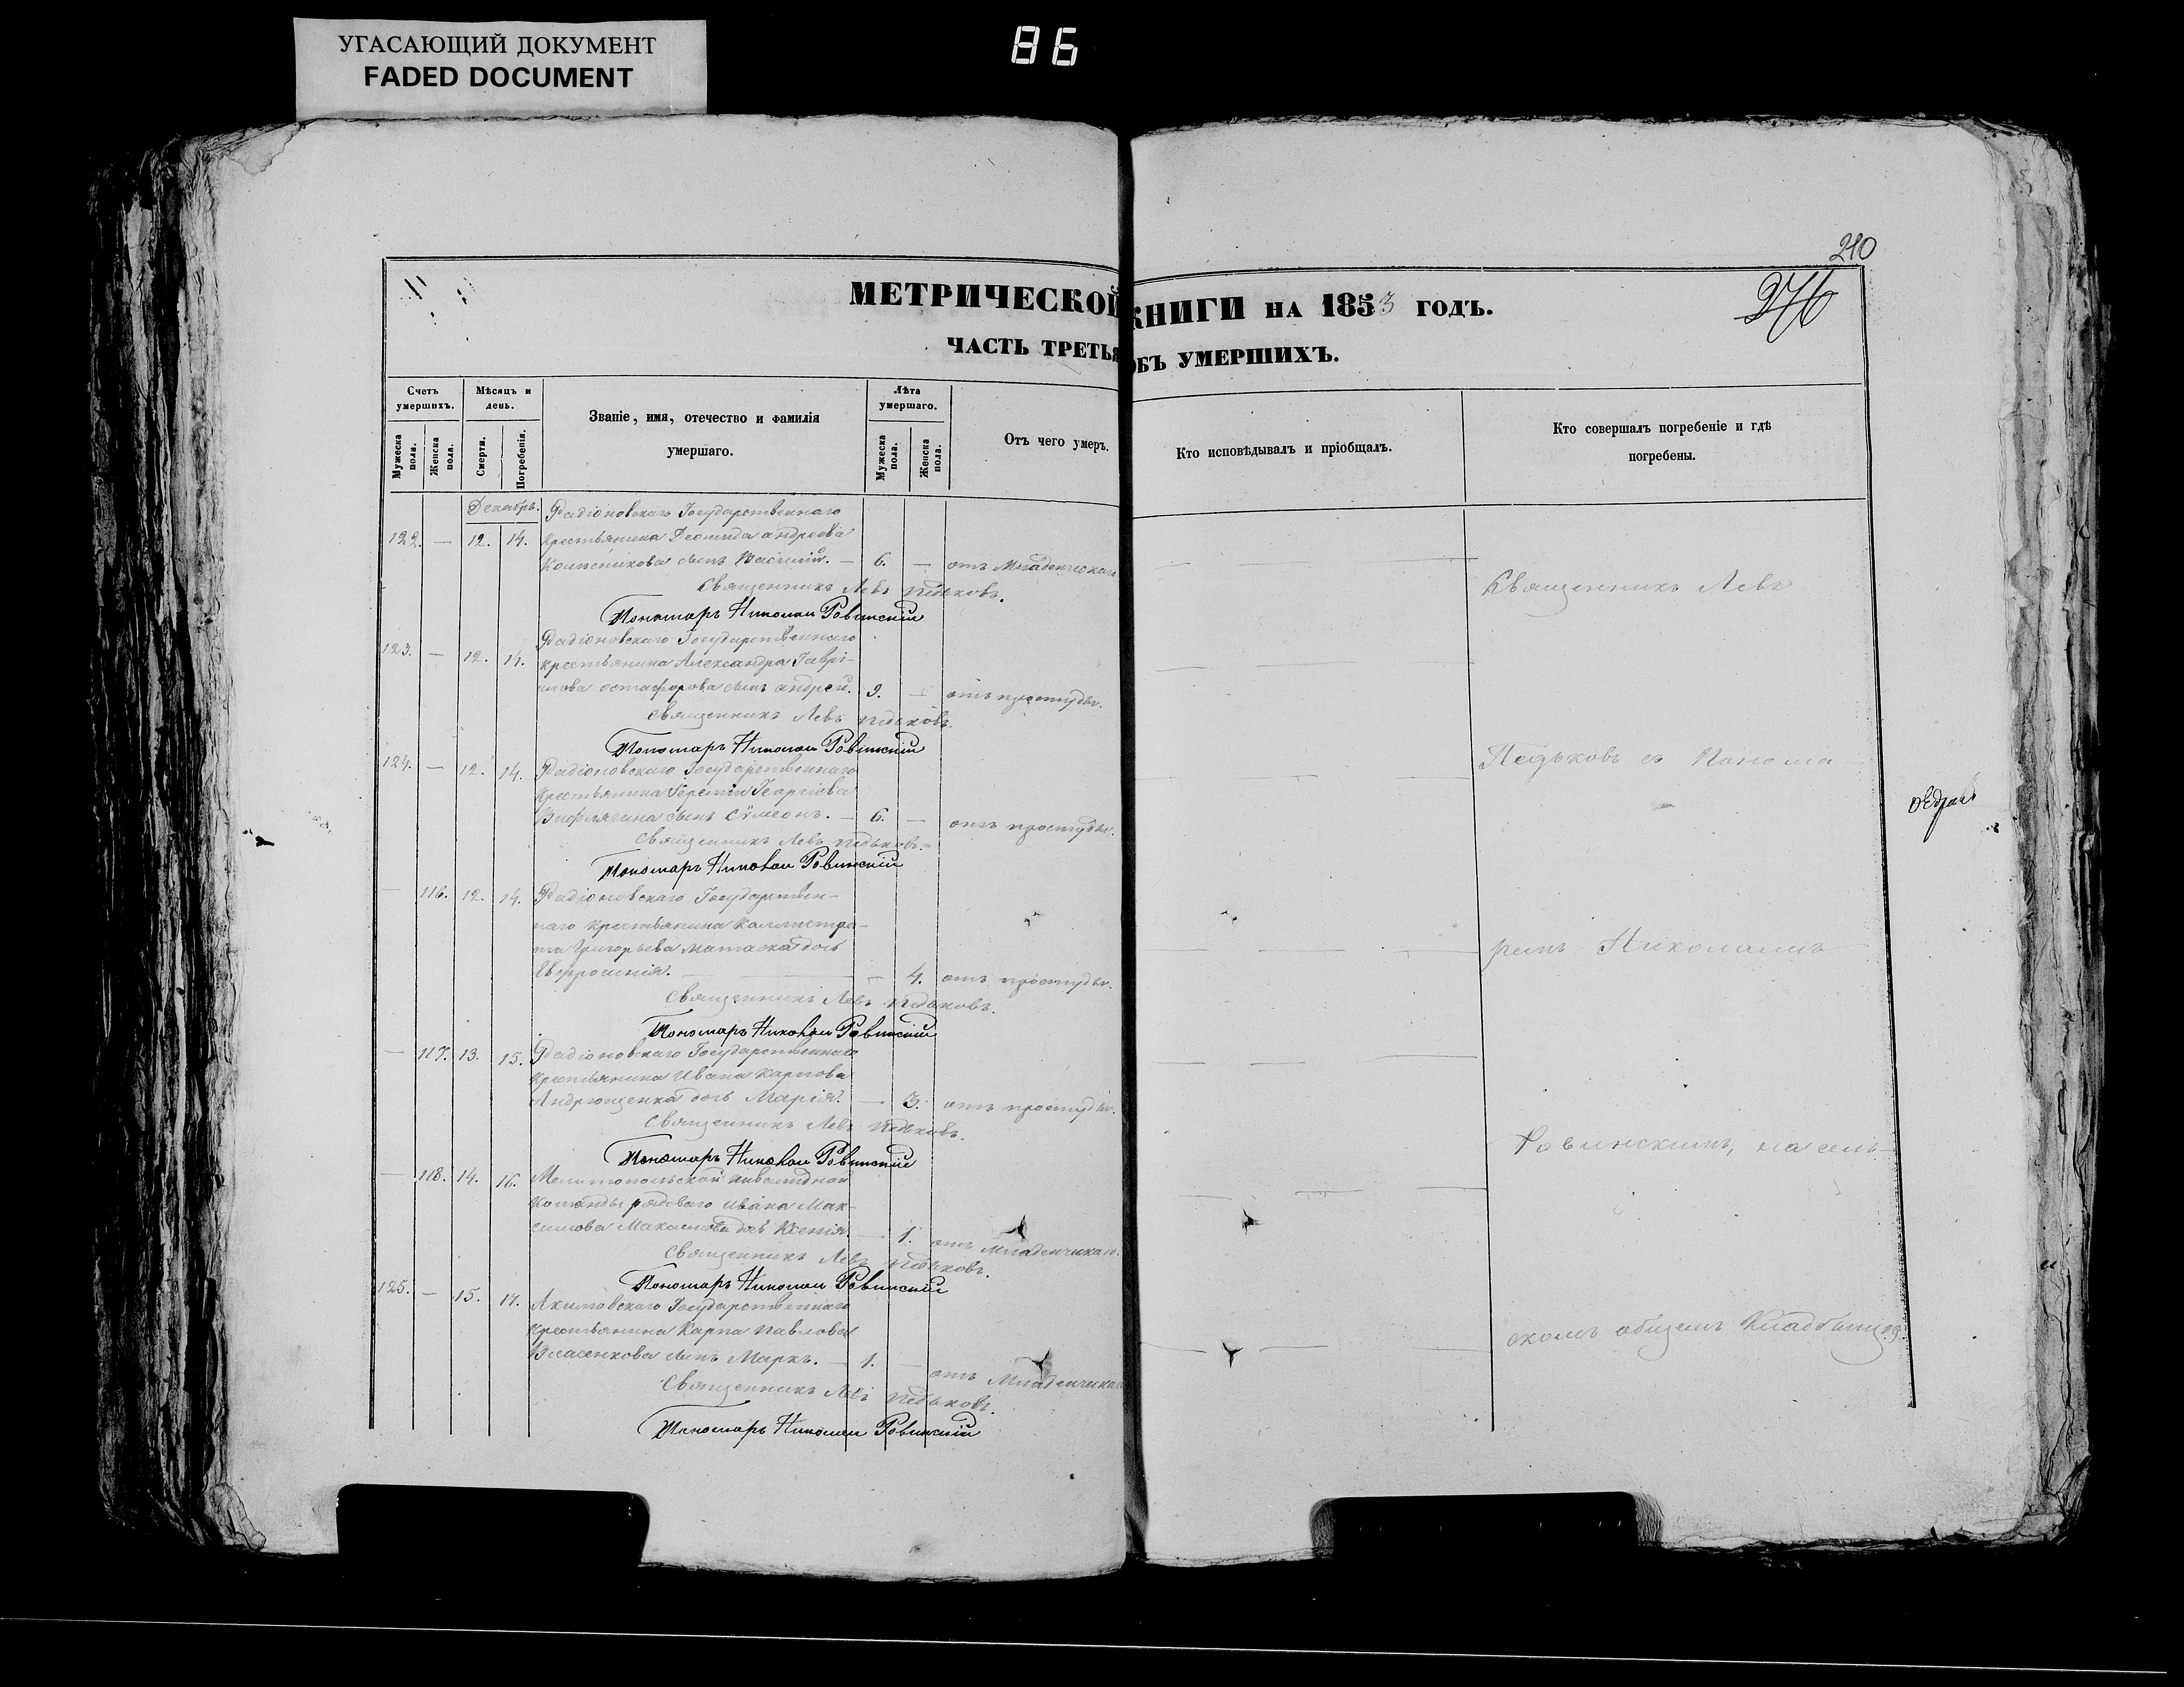 УГАСАЮЩИЙ ДОКУМЕНТ
FADED DOCUMENT
86
210
276
МЕТРИЧЕСКОЙ КНИГИ НА 1853 ГОДЪ.
ЧАСТЬ ТРЕТЬЯ ОБЪ УМЕРШИХЪ.
Счетъ умершихъ.
Мужеска пола.
Женска пола.
Мѣсяцъ и день.
Смерти.
Погребенія.
Званіе, имя, отечество и фамилія
умершаго.
Лѣта умершаго.
Мужеска пола.
Женска пола.
Отъ чего умеръ.
Кто исповѣдывалъ и пріобщалъ.
Кто совершалъ погребеніе и гдѣ
погребены.
Декабрь.
Радіоновскаго Государственнаго
122. — 12. 14. крестьянина Деомида андреева
Колесникова сынъ Василій. — 6. — отъ Младенческаго
Священникъ Левъ Педьковъ.
Пономарь Николай Ровинскій
Радіоновскаго Государственнаго
123. — 12. 14. крестьянина Александра Гаврі-
илова остафорова сынъ андрей. 9. — отъ простуды.
Священникъ Левъ Педьковъ.
Пономарь Николай Ровинскій
124. — 12. 14. Радіоновскаго Государственнаго
крестьянина Георгіева
сынъ Сѵмеонъ. — 6. — отъ простуды.
Священникъ Левъ Педьковъ.
Пономарь Николай Ровинскій
— 116. 12. 14. Радіоновскаго Государствен-
наго крестьянина Каллистра-
та Григорьева дочь
Евфросинія. — — 4. отъ простуды.
Священникъ Левъ Педьковъ.
Пономарь Николай Ровинскій
— 117. 13. 15. Радіоновскаго Государственнаго
крестьянина Ивана Карпова
Андрющенка дочь Марія. — 3. отъ простуды.
Священникъ Левъ Педьковъ.
Пономарь Николай Ровинскій
— 118. 14. 16. Мелитопольской инвалидной
команды рядоваго Ивана Мак-
симова Максимова дочь Ксенія. — 1. отъ Младенчискаго.
Священникъ Левъ Педьковъ.
Пономарь Николай Ровинскій
125. — 15. 17. Акимовскаго Государственнаго
крестьянина Карпа Павлова
Власенкова сынъ Маркъ. — 1. — отъ Младенчискаго
Священникъ Левъ Педьковъ.
Пономарь Николай Ровинскій
Священникъ Левъ
Педьковъ съ Понома
ремъ Николаемъ
Ровинскимъ, на сель-
скомъ общемъ Кладбищѣ.